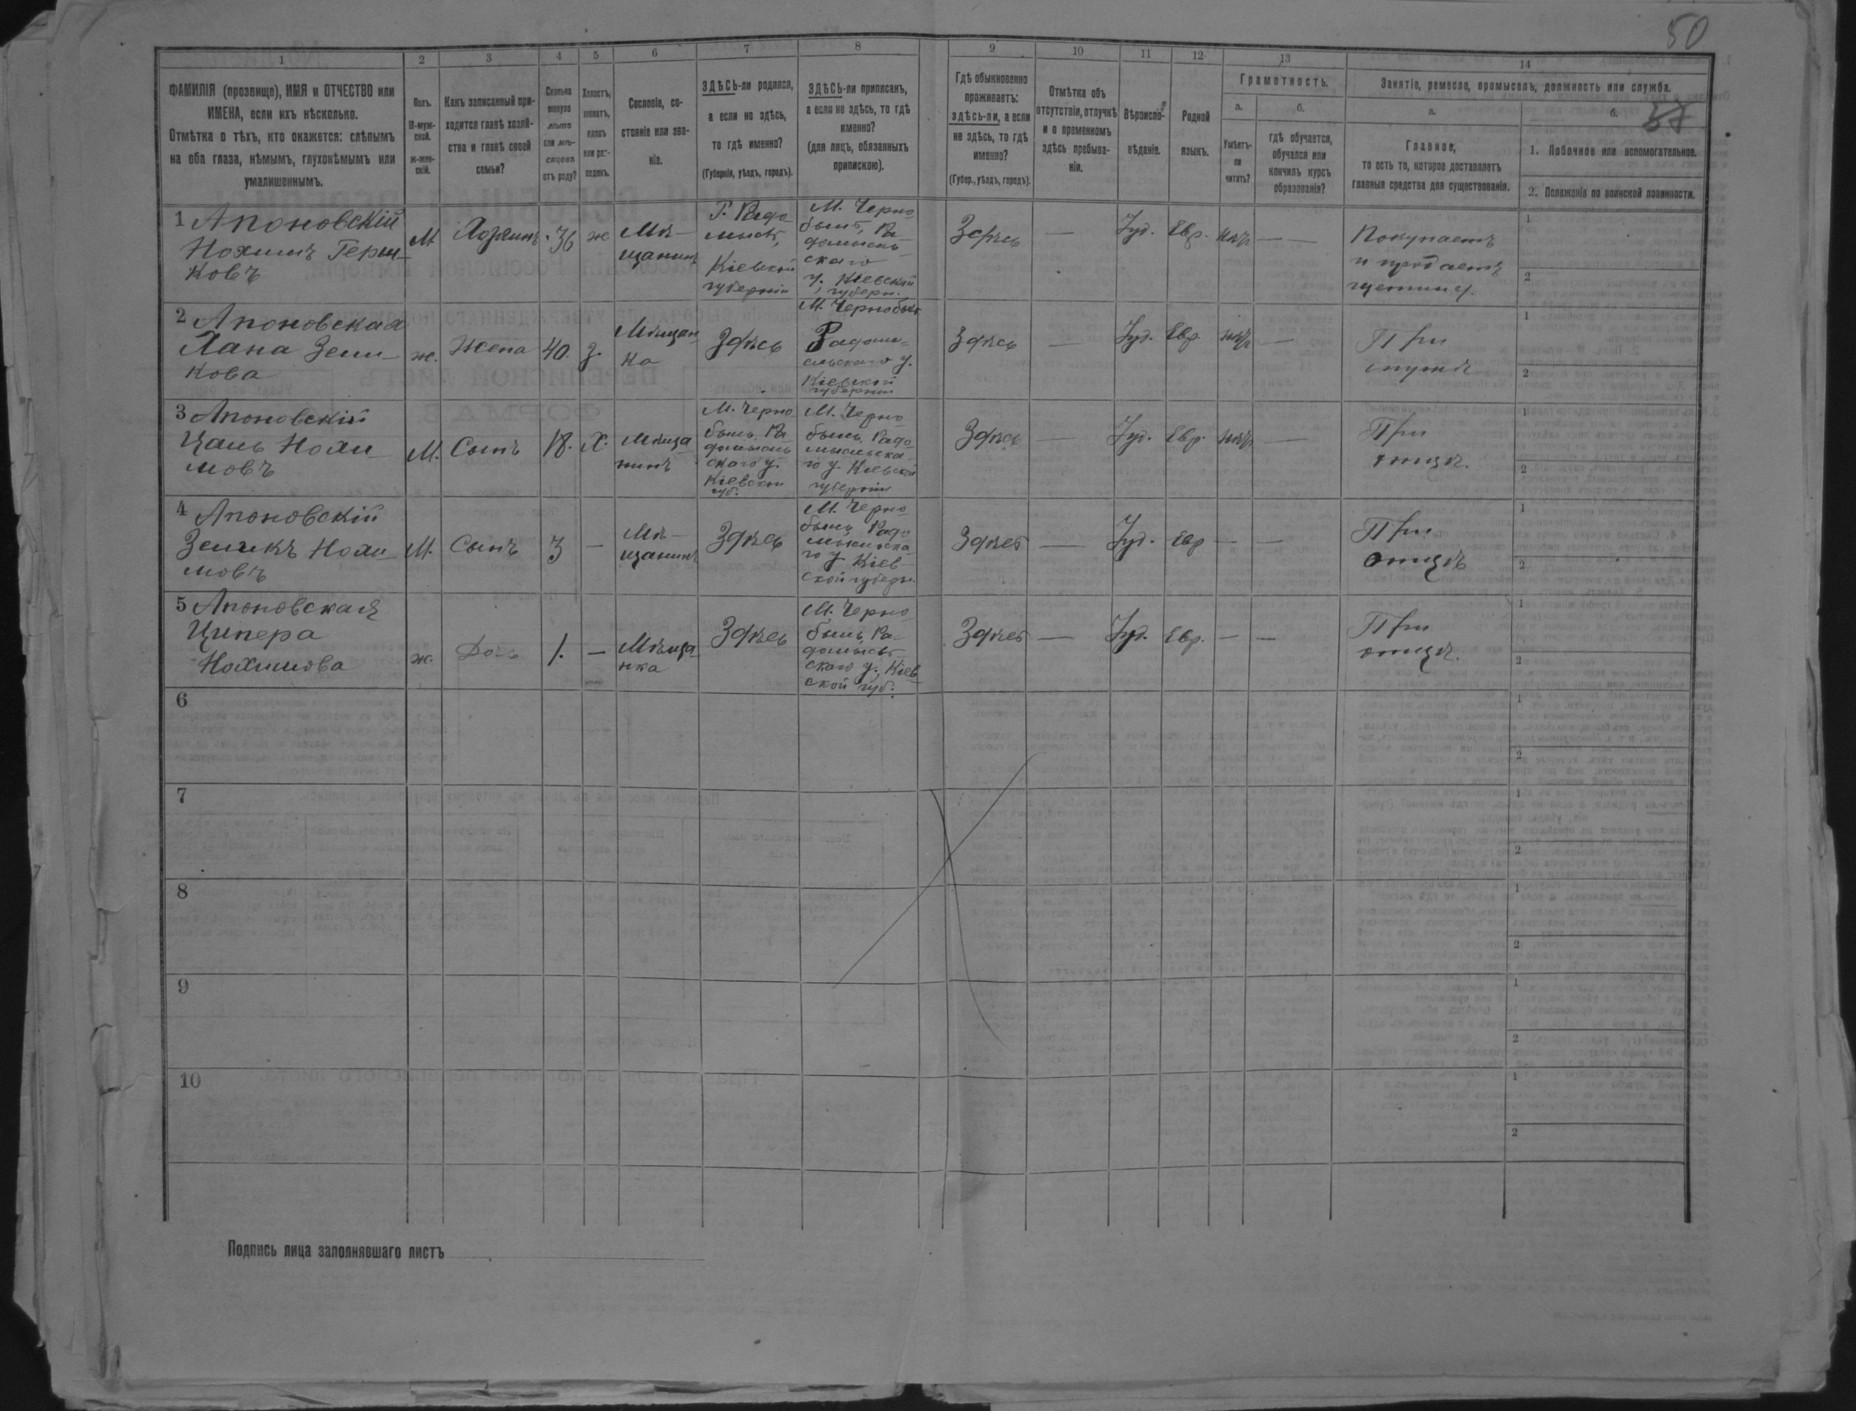 50
57
1
2
3
4
5
6
7
8
9
10
11
12
13
14
ФАМИЛІЯ (прозвище), ИМЯ и ОТЧЕСТВО или
ИМЕНА, если ихъ нѣсколько.
Отмѣтка о тѣхъ, кто окажется: слѣпымъ
на оба глаза, нѣмымъ, глухонѣмымъ или
умалишеннымъ.
Полъ.
М-муж-
ской.
ж-жен-
скій.
Какъ записанный при-
ходится главѣ хозяй-
ства и главѣ своей
семьи?
Сколько
минуло
лѣтъ
или мѣ-
сяцевъ
отъ роду?
Холостъ,
женатъ,
вдовъ
или раз-
веденъ.
Сословіе, со-
стояніе или зва-
ніе.
ЗДѢСЬ-ли родился,
а если не здѣсь,
то гдѣ именно?
(Губернія, уѣздъ, городъ).
ЗДѢСЬ-ли приписанъ,
а если не здѣсь, то гдѣ
именно?
(для лицъ, обязанныхъ
припискою).
Гдѣ обыкновенно
проживаетъ:
здѣсь-ли, а если
не здѣсь, то гдѣ
именно?
(Губер., уѣздъ, городъ).
Отмѣтка объ
отсутствіи, отлучкѣ
и о временномъ
здѣсь пребыва-
ніи.
Вѣроиспо-
вѣданіе.
Родной
языкъ.
Грамотность.
а.
б.
Умѣетъ-
ли
читать?
гдѣ обучается,
обучался или
кончилъ курсъ
образованія?
Занятіе, ремесло, промыселъ, должность или служба.
а.
б.
Главное,
то есть то, которое доставляетъ
главныя средства для существованія.
1. Побочное или вспомогательное.
2. Положеніе по воинской повинности.
1 Апоновскій
Нохимъ Герш-
ковъ
М
Хозяинъ
36
ж
Мѣ-
щанинъ
Г. Радо
мысль,
Кіевской
губерніи
М. Черно
быль, Ра-
домысль-
скаго
у. Кіевской
губерн.
Здѣсь
—
Іуд.
Евр.
— —
Покупаетъ
и продаетъ
щетину.
1
2
2 Апоновская
Хана Зели-
кова
ж.
Жена
40.
з.
Мѣщан
ка
Здѣсь
М. Чернобыль
Радомы-
сльскаго у.
Кіевской
губерніи
Здѣсь
—
Іуд.
Евр.
—
При
мужѣ
1
2
3 Апоновскій
Цаль Нохи-
мовъ
М.
Сынъ
18.
Х.
Мѣща
нинъ
М. Черно
быль, Ра-
домысль
скаго у.
Кіевской
губ.
М. Черно
быль, Радо
мысльска-
го у. Кіевской
губерніи
Здѣсь
—
Іуд.
Евр.
—
При
отцѣ.
1
2
4 Апоновскій
Зеликъ Нохи-
мовъ
М.
Сынъ
3
—
Мѣ-
щанинъ
Здѣсь
М. Черно
быль, Радо
мысльска-
го у. Кіев-
ской губерн.
Здѣсь
—
Іуд.
Евр
— —
При
отцѣ
1
2
5 Апоновская
Ципера
Нохимова
ж.
Дочь
1.
—
Мѣща-
нка
Здѣсь
М. Черно
быль, Ра-
домысль-
скаго у., Кіев
ской губ.
Здѣсь
—
Іуд.
Евр.
— —
При
отцѣ.
1
2
6
1
2
7
1
2
8
1
2
9
1
2
10
1
2
Подпись лица заполнявшаго листъ